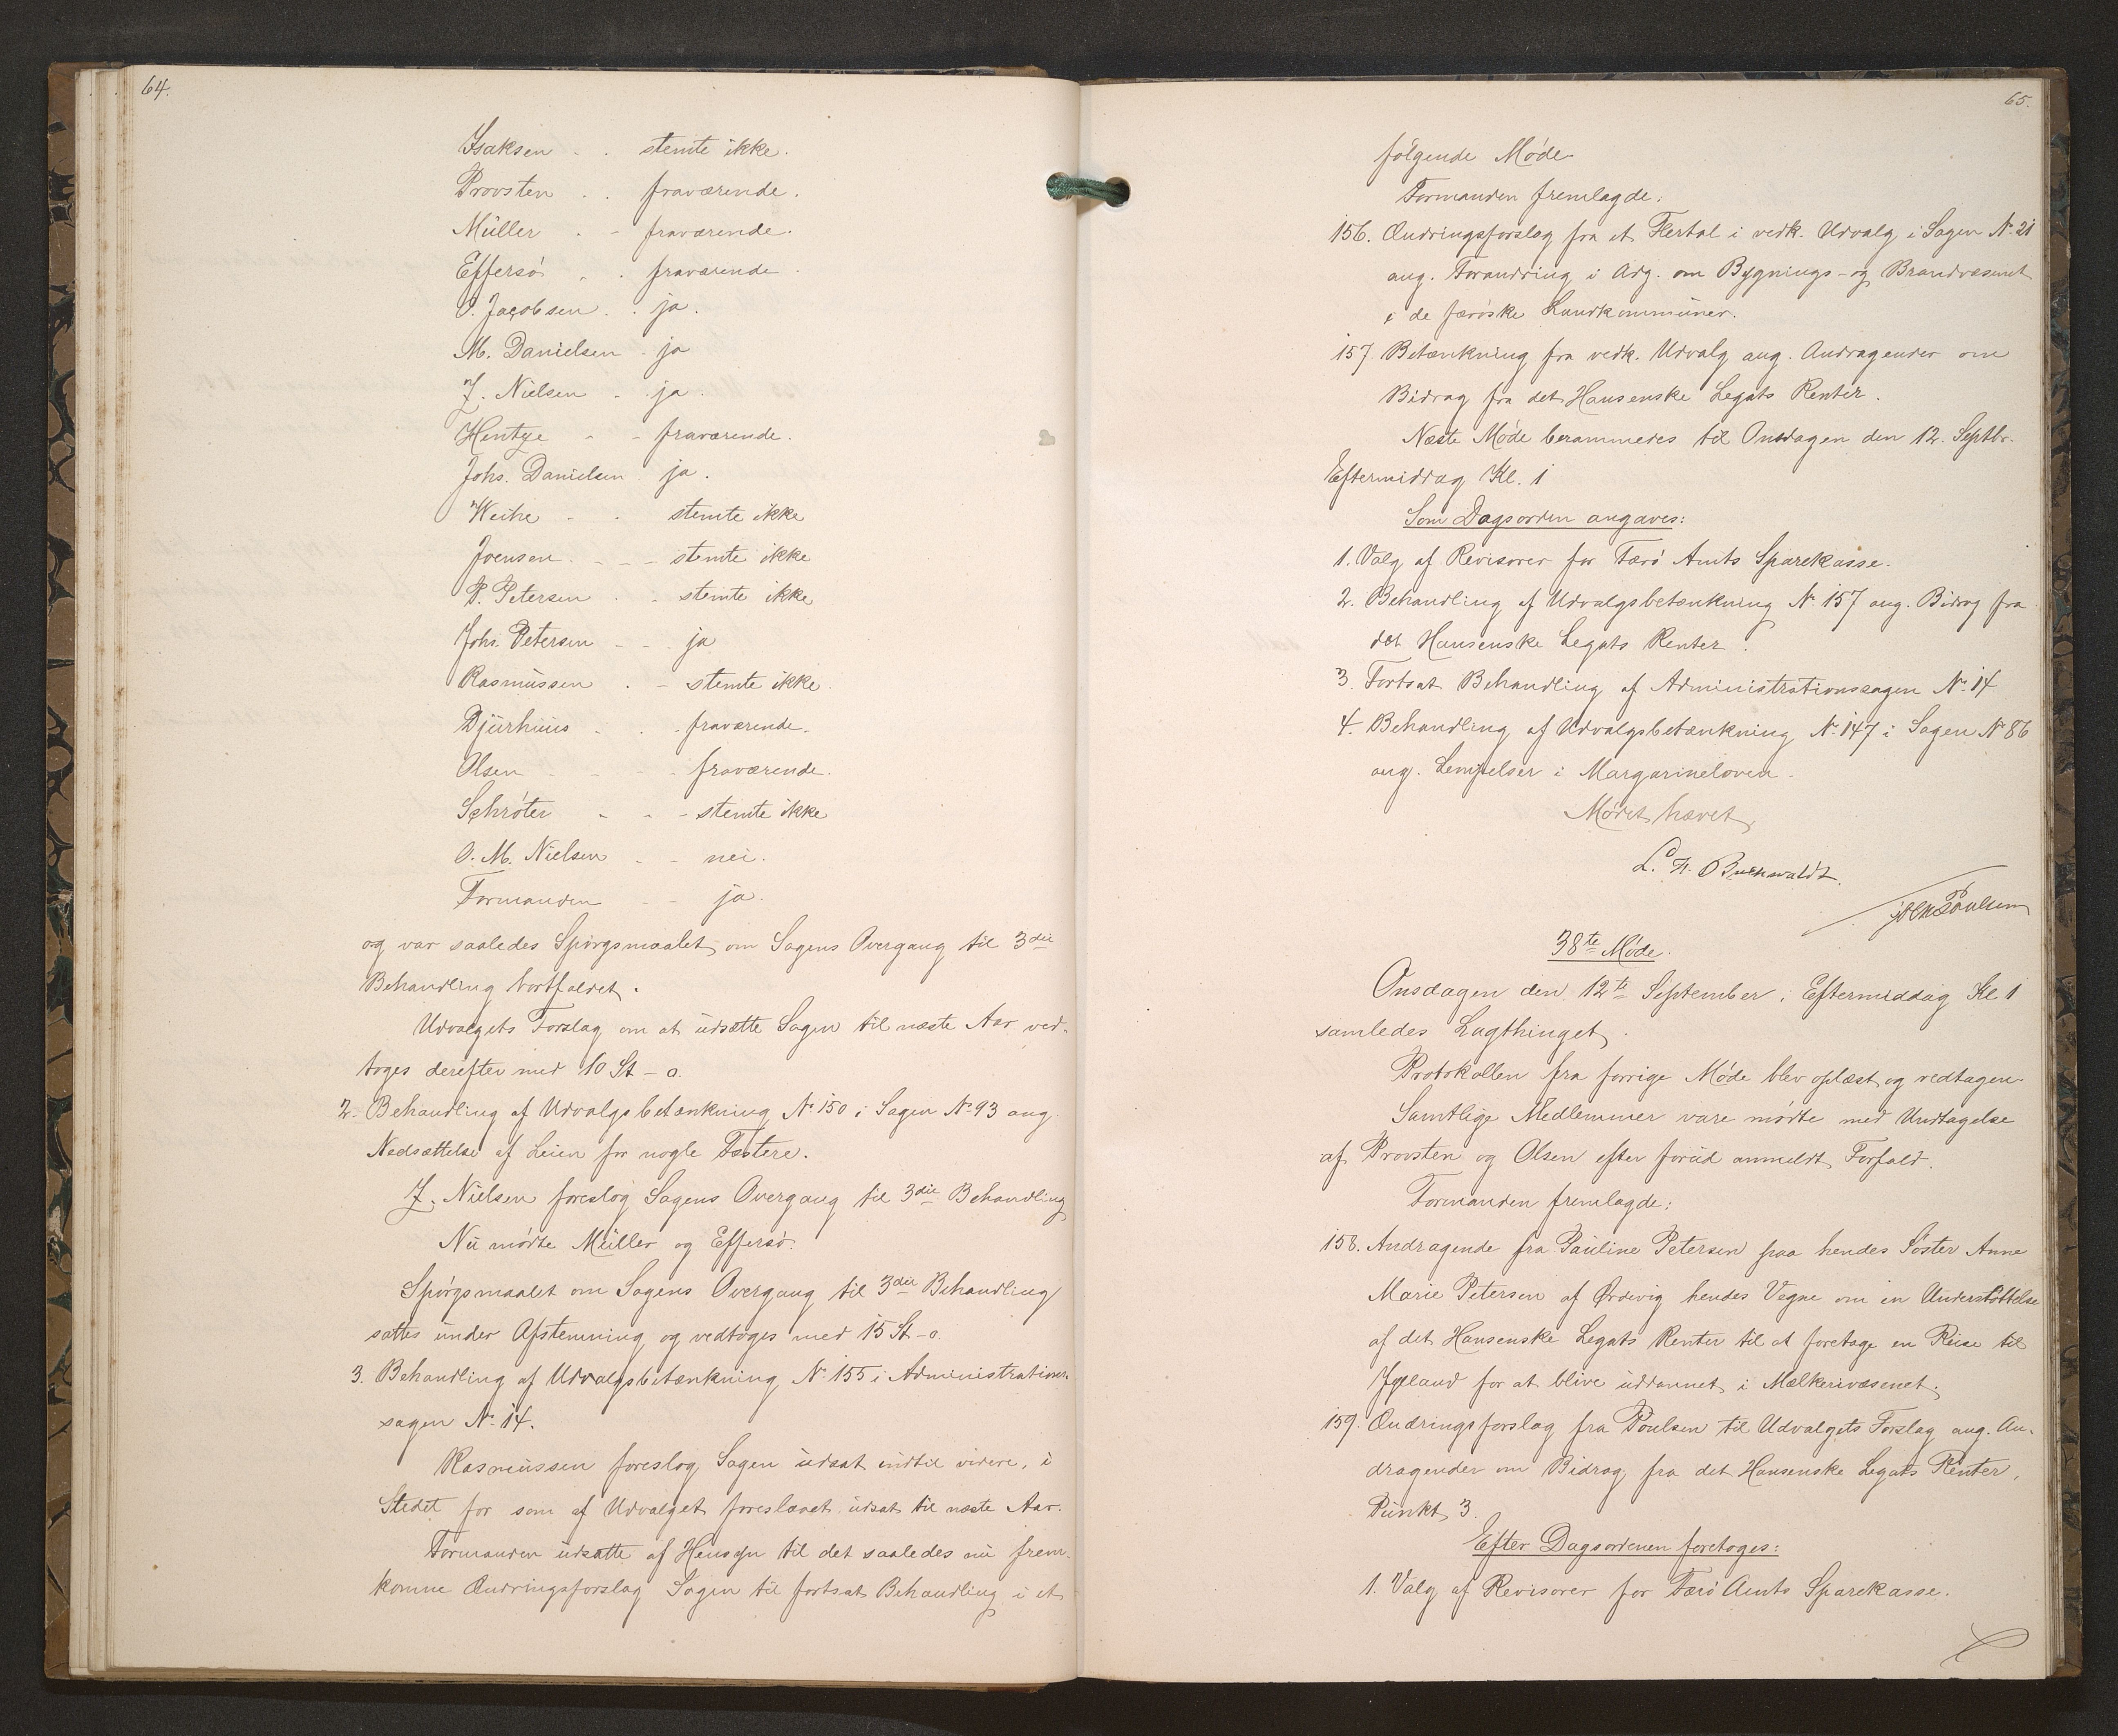 64.
Isaksen . . stemte ikke.
Provsten . . fraværende.
Müller . - fraværende.
Effersø . . fraværende.
O. Jacobsen . . ja.
M. Danielsen - ja
J. Nielsen . ja.
Hentze - - fraværende.
Johs. Danielsen ja.
Weihe - . stemte ikke
Joensen. - - - stemte ikke
P. Petersen . . stemte ikke
Johs. Petersen - - . ja
Rasmussen . - stemte ikke.
Djurhuus - . . fraværende.
Olsen - - - fraværende.
Schrøter - - - stemte ikke
O. M. Nielsen - - nei.
Formanden - - ja.
og var saaledes Spørgsmaalet om Sagens Overgang til 3die
Behandling bortfaldet.
Udvalgets Forslag om at udsætte Sagen til næste Aar ved-
toges derefter med 10 St - o.
2. Behandling af Udvalgsbetænkning No 150 i Sagen No 93 ang.
Nedsættelse af Leien for nogle Fæstere.
J. Nielsen foreslog Sagens Overgang til 3die Behandling
Nu mødte Müller og Effersø.
Spørgsmaalet om Sagens Overgang til 3die Behandling
sattes under Afstemning og vedtoges med 15 St - o.
3. Behandling af Udvalgsbetænkning No 155 i Administrations-
sagen No 14.
Rasmussen foreslog Sagen udsat indtil videre, i
Stedet for som af Udvalget foreslaaet udsat til næste Aar.
Formanden udsatte af Hensyn til det saaledes nu frem-
komne Ændringsforslag Sagen til fortsat Behandling i et
65.
følgende Møde
Formanden fremlagde:
156. Ændringsforslag fra et Flertal i vedk. Udvalg i Sagen No 21
ang. Forandring i Adg. om Bygnings- og Brandvæsenet
i de færøske Landkommuner.
157. Betænkning fra vedk. Udvalg ang. Andragender om
Bidrag fra det Hansenske Legats Renter.
Næste Møde berammedes til Onsdagen den 12. Septbr.
Eftermiddag Kl. 1
Som Dagsorden angaves:
1. Valg af Revisorer for Færø Amts Sparekasse.
2. Behandling af Udvalgsbetænkning No 157 ang. Bidrag fra
det Hansenske Legats Renter.
3. Fortsat Behandling af Administrationssagen No 14
4. Behandling af Udvalgsbetænkning No 147 i Sagen No 86
ang. Lempelser i Margarineloven.
Mødet hævet
L. H. Buchwaldt.
Poulsen
38te Møde.
Onsdagen den 12te September, Eftermiddag Kl 1
samledes Lagthinget.
Protokollen fra forrige Møde blev oplæst og vedtagen.
Samtlige Medlemmer vare mødte med Undtagelse
af Provsten og Olsen efter forud anmeldt Forfald.
Formanden fremlagde:
158. Andragende fra Pauline Petersen paa hendes Søster Anne
Marie Petersen af Ørdevig hendes Vegne om en Understøttelse
af det Hansenske Legats Renter til at foretage en Reise til
Jylland for at blive uddannet i Mælkerivæsenet.
159. Ændringsforslag fra Poulsen til Udvalgets Forslag ang. An-
dragender om Bidrag fra det Hansenske Legats Renter,
Punkt 3.
Efter Dagsordenen foretoges:
1. Valg af Revisorer for Færø Amts Sparekasse.